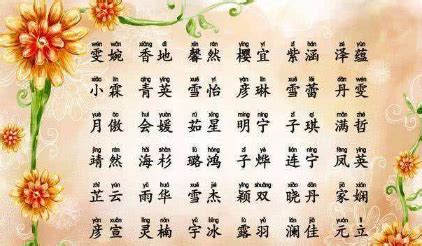 wén wǎn xiāng dì xīn rán yīng yí zǐ hán zé yùn
雯婉 香地 馨然 樱宜 紫涵 泽蕴
xiǎo lín qīng yīng xuě yí yàn lín xuě lěi dān wén
小霖 青英 雪怡 彦琳 雪蕾 丹雯
yuè ào huì yuàn rú xīng míng níng zǐ qí mǎn zhé
月傲 会媛 茹星 明宁 子琪 满哲
jìng rán hǎi shān lù hóng zǐ yè lián níng fèng yīng
靖然 海杉 璐鸿 子烨 连宁 凤英
zhǐ yún yǔ huá xuě jié yǐng shuāng xiǎo dān jiā xián
芷云 雨华 雪杰 颖双 晓丹 家娴
yàn xuān líng nán yǔ bīng lù yǔ lán jiā yuán lì
彦宣 灵楠 宇冰 露羽 澜佳 元立